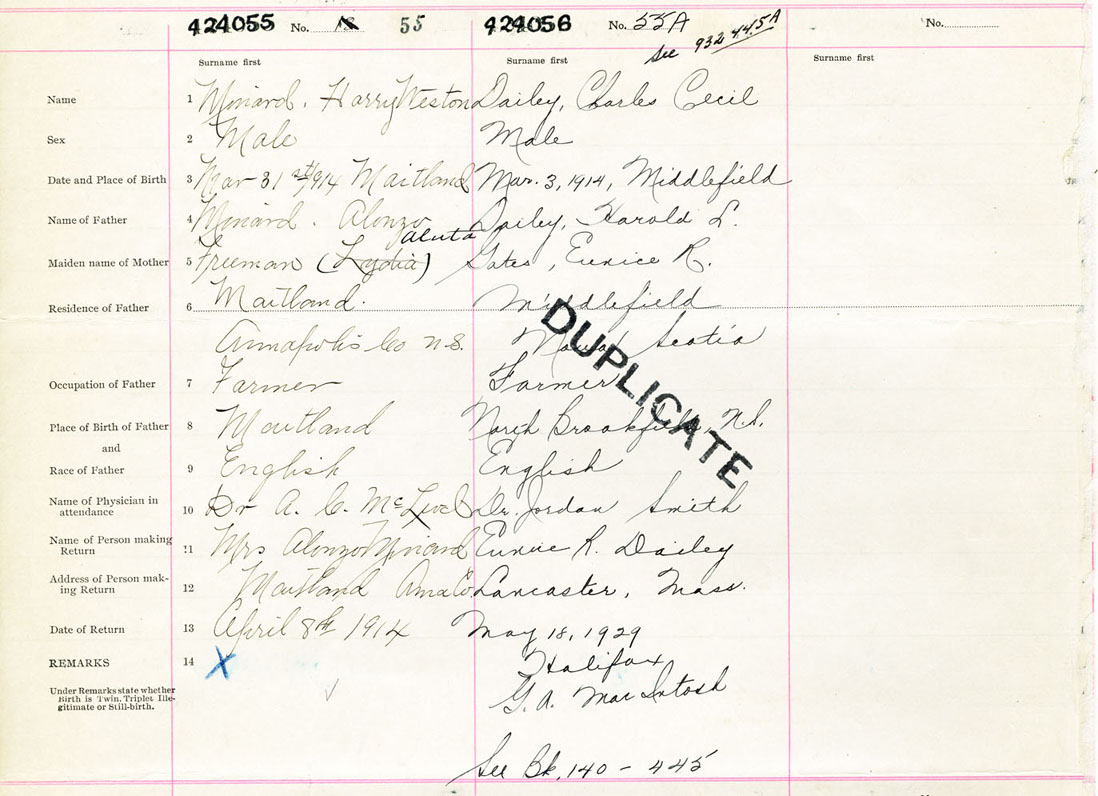 424055 No. 18 55 424056 No. 55A No.
See 932 445A
Surname first Surname first Surname first
Name 1 Minard. Harry Weston Dailey, Charles Cecil
Sex 2 Male Male
Date and Place of Birth 3 Mar 31st 1914 Maitland Mar. 3, 1914, Middlefield
Name of Father 4 Minard. Alonzo Dailey, Harold L.
Maiden name of Mother 5 Freeman (Lydia) Gates, Eunice R.
Residence of Father 6 Maitland. Middlefield
Annapolis Co N.S. Nova Scotia
Occupation of Father 7 Farmer Farmer
Place of Birth of Father 8 Maitland North Brookfield, N.S.
and
Race of Father 9 English English
Name of Physician in
attendance 10 Dr A. C. Dr. Jordan Smith
Name of Person making
Return 11 Mrs Alonzo Minard Eunice R. Dailey
Address of Person mak-
ing Return 12 Maitland Anna Co Lancaster, Mass.
Date of Return 13 April 8th 1914 May 18, 1929
REMARKS 14 X Halifax
Under Remarks state whether
Birth is Twin, Triplet Ille-
gitimate or Still-birth.
G. A. MacIntosh
See Bk. 140 - 445
DUPLICATE